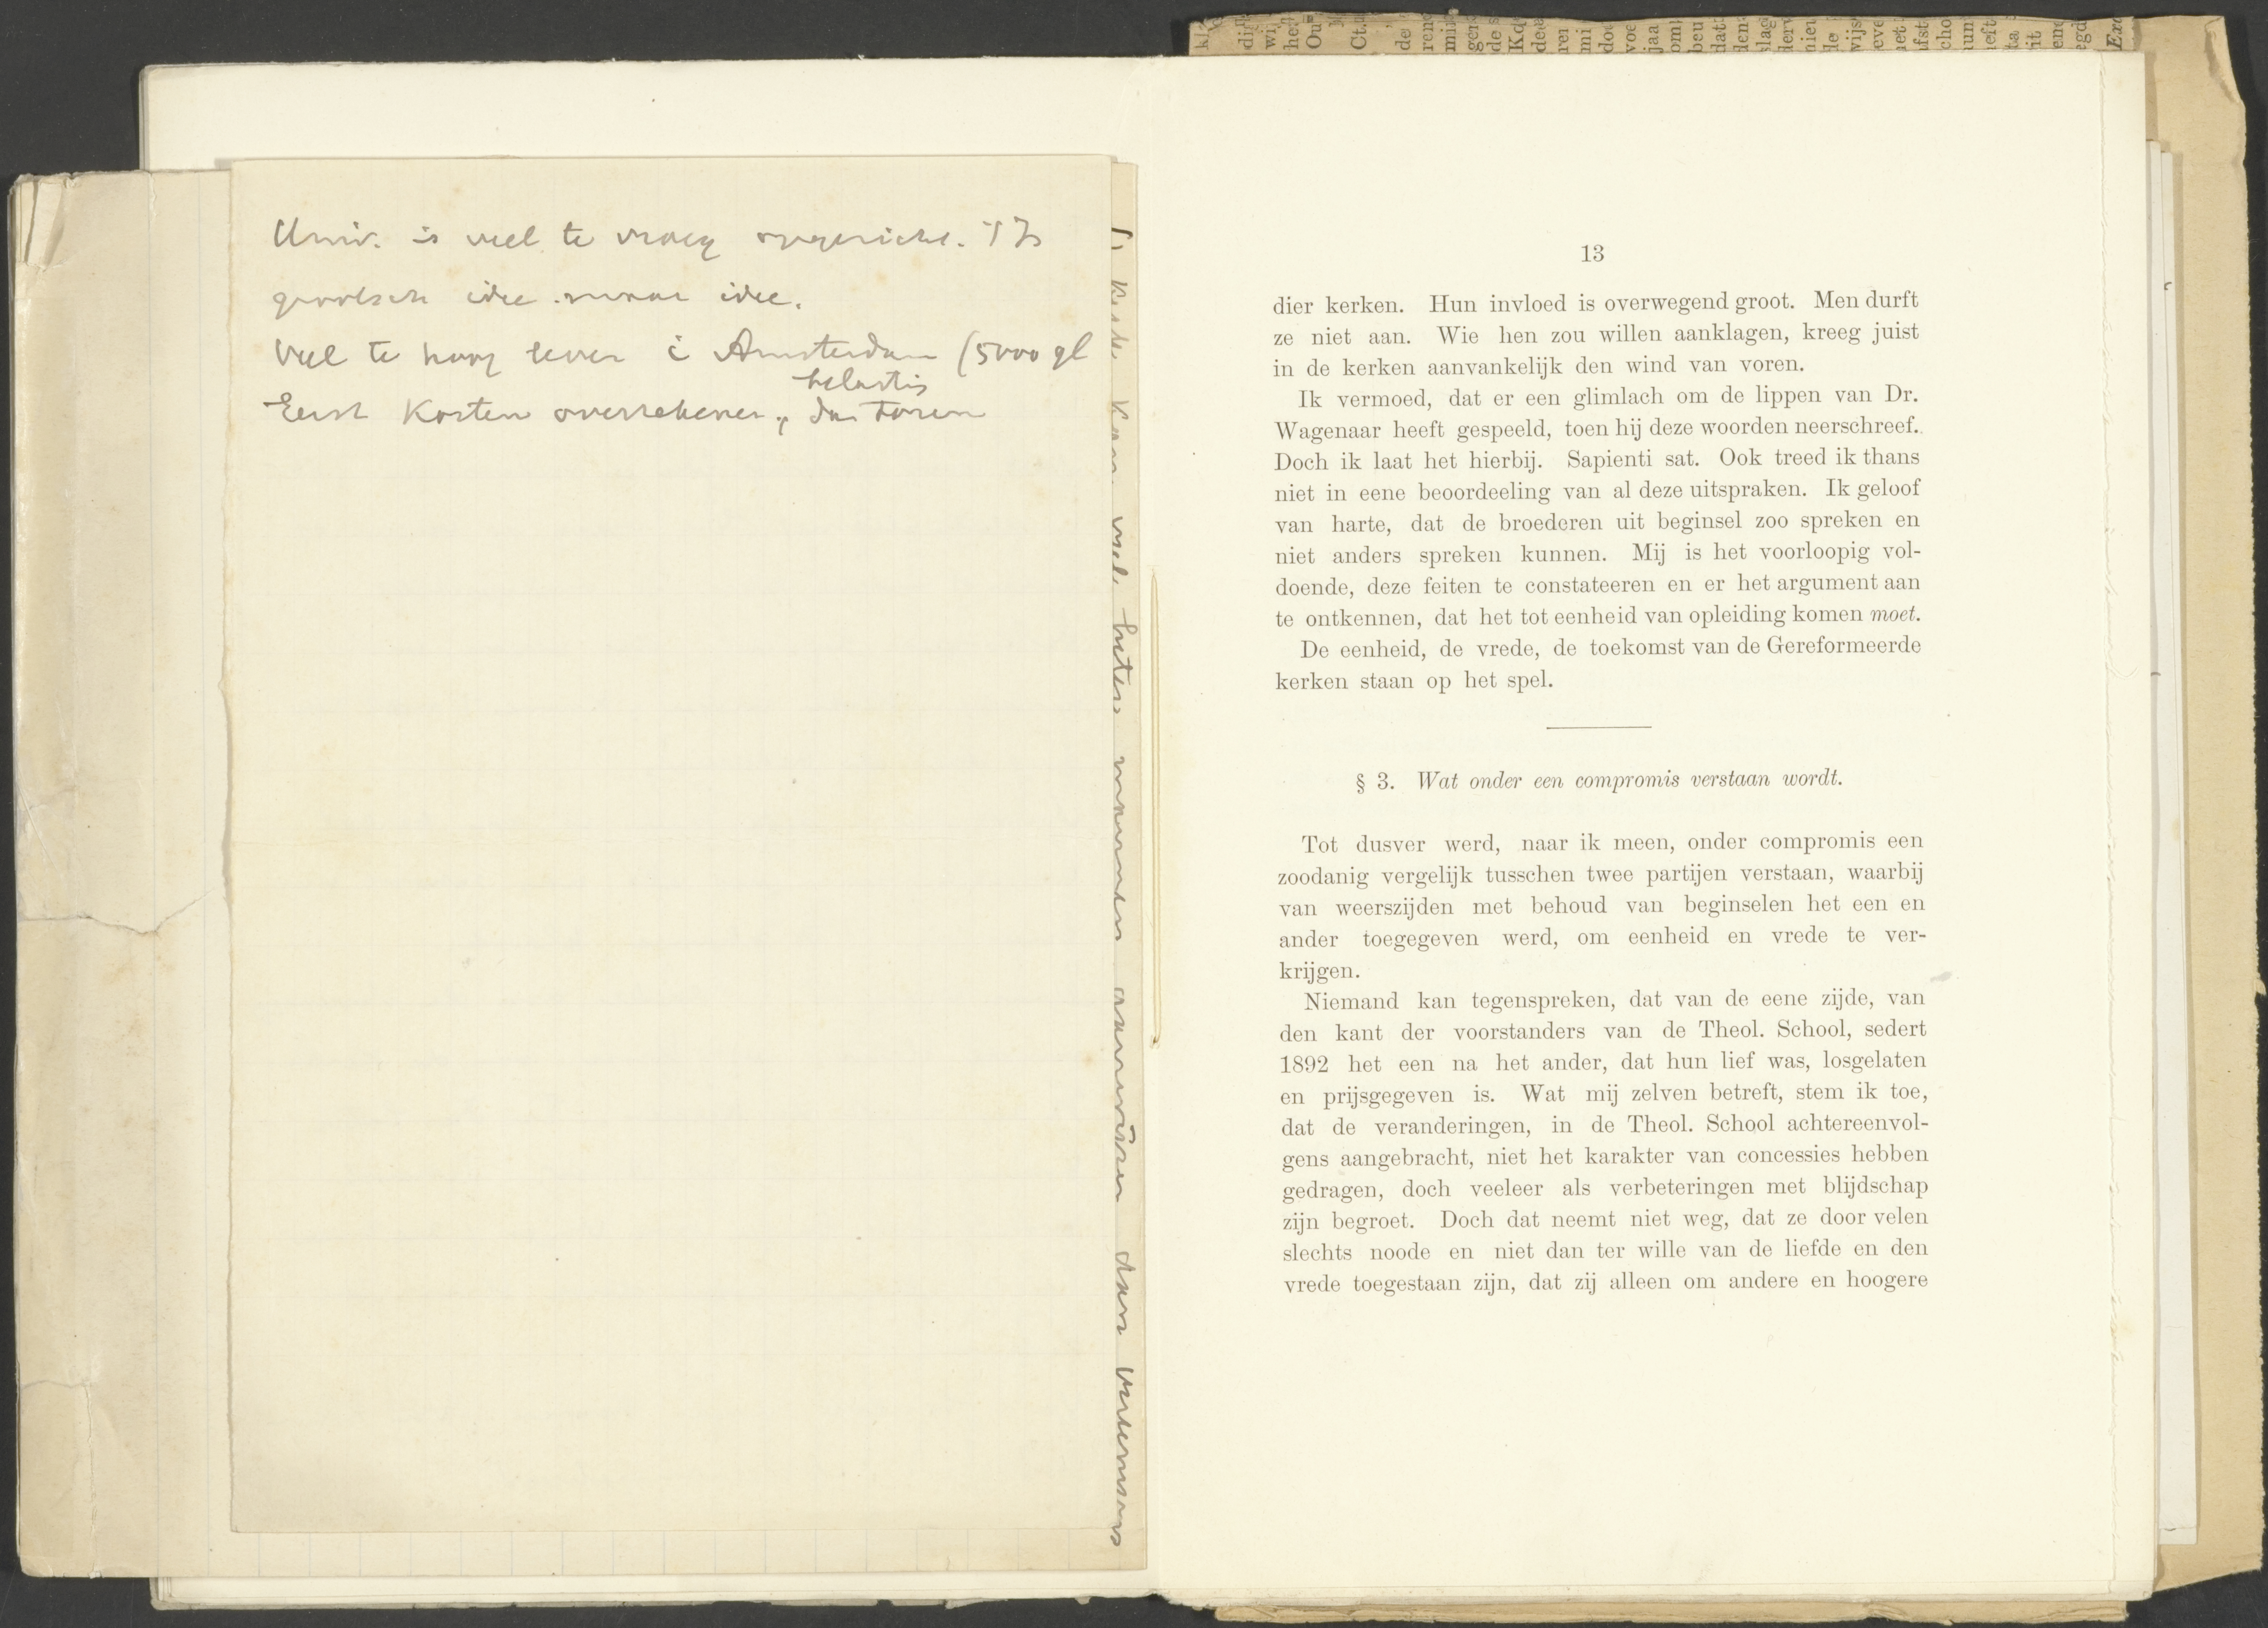 Univ. is veel te vroeg opgericht. 't Is
grootsch idee maar idee.
Veel te hoog leven i Amsterdam (5000 gl
belasting
Eerst Kosten overrekenen, dan toren
Kerk Kan niet beter
dan
13
dier kerken. Hun invloed is overwegend groot. Men durft
ze niet aan. Wie hen zou willen aanklagen, kreeg juist
in de kerken aanvankelijk den wind van voren.
Ik vermoed, dat er een glimlach om de lippen van Dr.
Wagenaar heeft gespeeld, toen hij deze woorden neerschreef.
Doch ik laat het hierbij. Sapienti sat. Ook treed ik thans
niet in eene beoordeeling van al deze uitspraken. Ik geloof
van harte, dat de broederen uit beginsel zoo spreken en
niet anders spreken kunnen. Mij is het voorloopig vol-
doende, deze feiten te constateeren en er het argument aan
te ontkennen, dat het tot eenheid van opleiding komen moet.
De eenheid, de vrede, de toekomst van de Gereformeerde
kerken staan op het spel.
§ 3. Wat onder een compromis verstaan wordt.
Tot dusver werd, naar ik meen, onder compromis een
zoodanig vergelijk tusschen twee partijen verstaan, waarbij
van weerszijden met behoud van beginselen het een en
ander toegegeven werd, om eenheid en vrede te ver-
krijgen.
Niemand kan tegenspreken, dat van de eene zijde, van
den kant der voorstanders van de Theol. School, sedert
1892 het een na het ander, dat hun lief was, losgelaten
en prijsgegeven is. Wat mij zelven betreft, stem ik toe,
dat de veranderingen, in de Theol. School achtereenvol-
gens aangebracht, niet het karakter van concessies hebben
gedragen, doch veeleer als verbeteringen met blijdschap
zijn begroet. Doch dat neemt niet weg, dat ze door velen
slechts noode en niet dan ter wille van de liefde en den
vrede toegestaan zijn, dat zij alleen om andere en hoogere